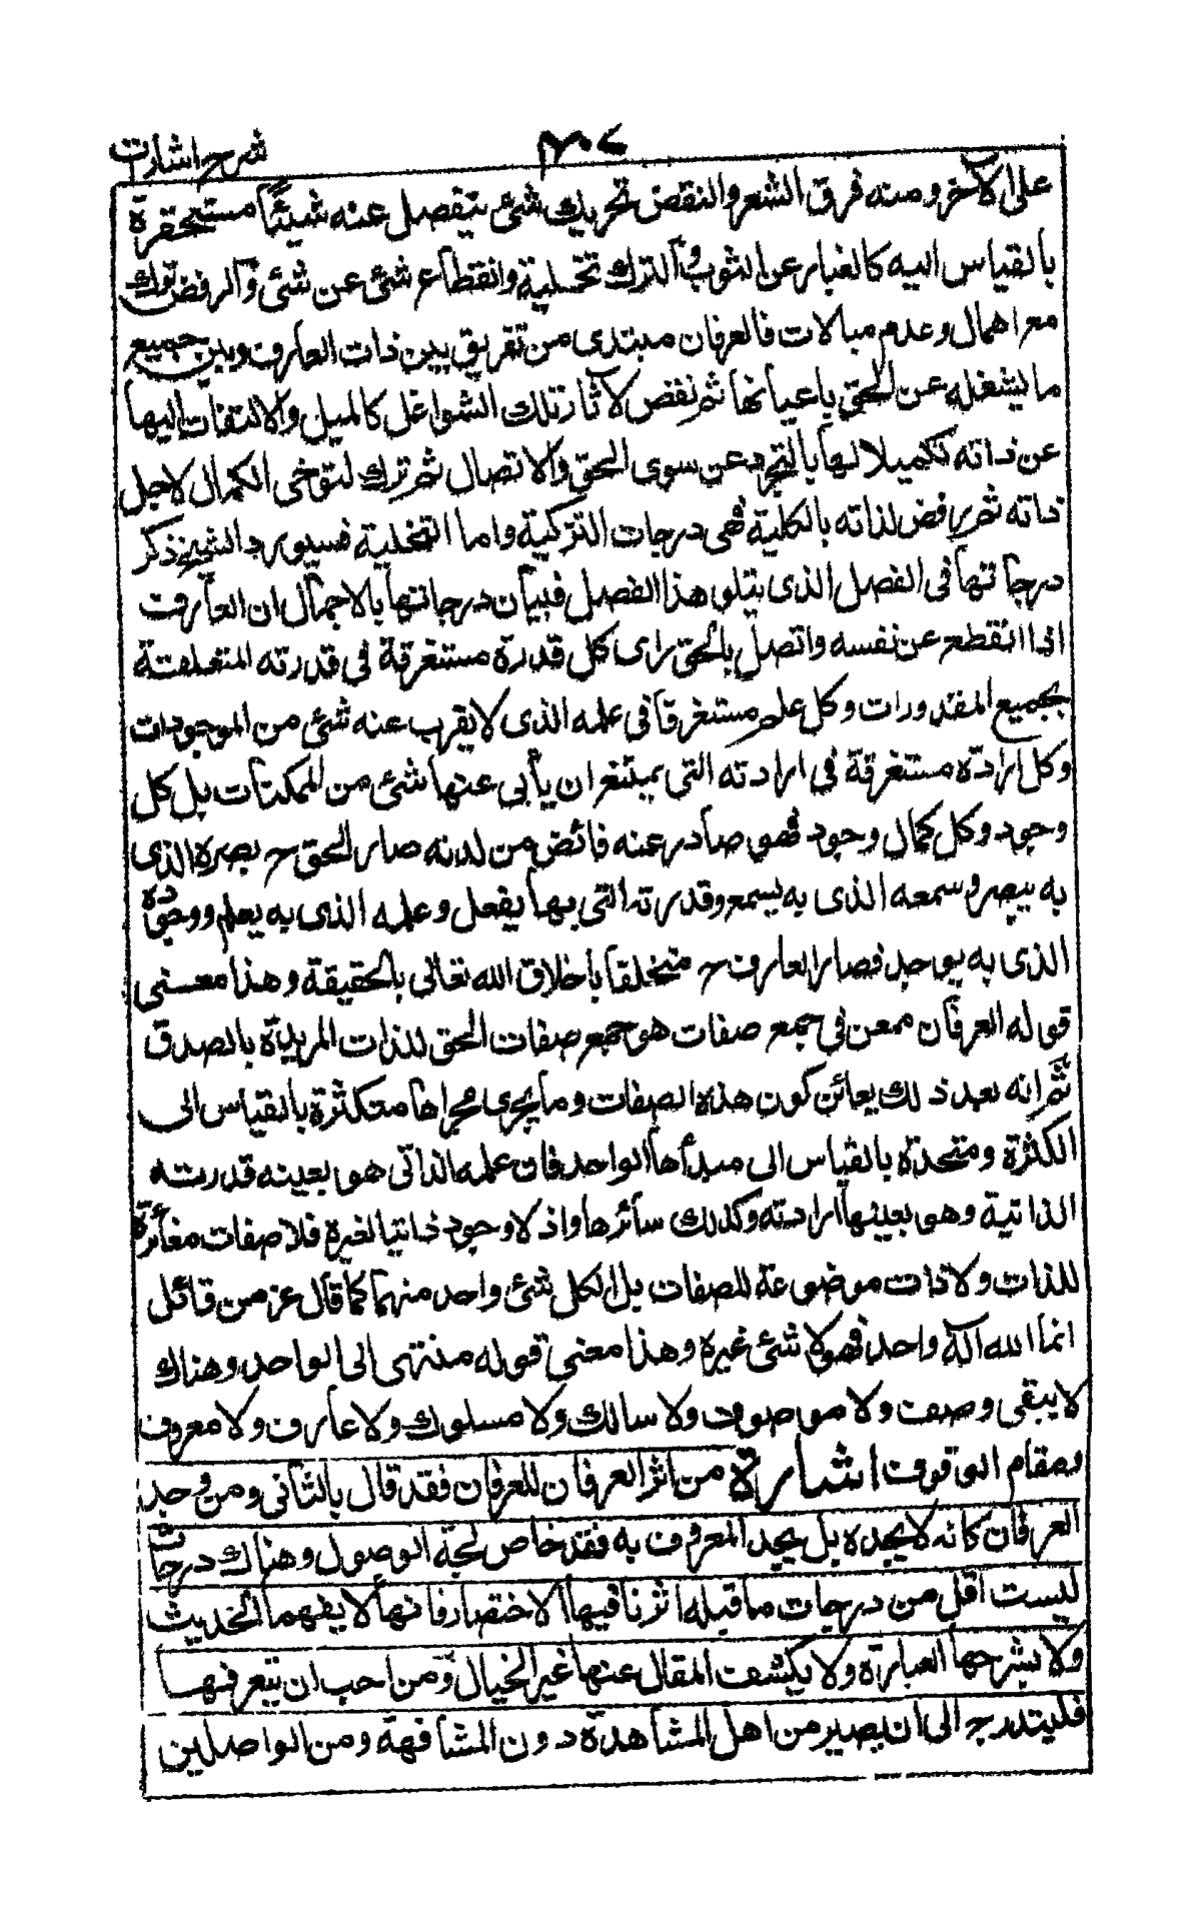 شرح اشارات
على الآخر ومنه فرق الشعر والنفض تحريك شئ ينفصل عنه شيئًا مستحقرة
بالقياس اليه كالغبار عن الثوب والترك تخلية وانقطاع شئ عن شئ والرفض ترك
مع اهمال وعدم مبالات فالعرفان مبتدى من تفريق بين ذات العارف وبين جميع
ما يشغله عن الحق باعيانها ثم نفض لاثار تلك الشواغل كالميل والالتفات اليها
عن ذاته تكميلا لها بالتجرد عن سوى الحق والاتصال ثم ترك لتوخى الكمال لاجل
ذاته ثم رفض لذاته بالكلية فهى درجات التزكية واما التحلية فسيورد الشيخ ذكر
درجاتها فى الفصل الذى يتلو هذا الفصل فبيان درجاتها بالاجمال ان العارف
اذا انقطع عن نفسه واتصل بالحق راى كل قدرة مستغرقة فى قدرته المتعلقة
بجميع المقدورات وكل علم مستغرقا فى علمه الذى لا يقرب عنه شئ من الموجودات
وكل ارادة مستغرقة فى ارادته التى يمتنع ان يأبى عنها شئ من الممكنات بل كل
وجود وكل كمال وجود فهو صادر عنه فائض من لدنه صار الحق ح بصره الذى
به يبصر وسمعه الذى به يسمع وقدرته التى بها يفعل وعلمه الذى به يعلم ووجوده
الذى به يوجد فصار العارف ح متخلقا باخلاق الله تعالى بالحقيقة وهذا معنى
قوله العرفان ممعن فى جمع صفات هو جمع صفات الحق للذات المريدة بالصدق
ثم انه بعد ذلك يعائن كون هذه الصفات وما يجرى مجراها متكثرة بالقياس الى
الكثرة ومتحدة بالقياس الى مبدأها الواحد فان علمه الذاتى هو بعينه قدرته
الذاتية وهى بعينها ارادته وكذلك سائرها واذ لا وجود ذاتيا لغيره فلا صفات مغائرة
للذات ولا ذات موضوعة للصفات بل الكل شئ واحد منهما كما قال عز من قائل
انما الله اله واحد فهو لا شئ غيره وهذا معنى قوله منتهى الى الواحد وهناك
لا يبقى وصف ولا موصوف ولا سالك ولا مسلوك ولا عارف ولا معروف
ومقام الوقوف اشارة من اثر العرفان للعرفان فقد قال بالثانى ومن وجد
العرفان كانه لا يجده بل يجد المعروف به فقد خاص لجة الوصول وهناك درجات
ليست اقل من درجات ما قبله اثرنا فيها الاختصار فانها لا يفهما الحديث
ولا يشرحها العبارة ولا يكشف المقال عنها غير الخيال ومن احب ان يتعرفها
فليتدرج الى ان يصير من اهل المشاهدة دون المشافهة ومن الواصلين